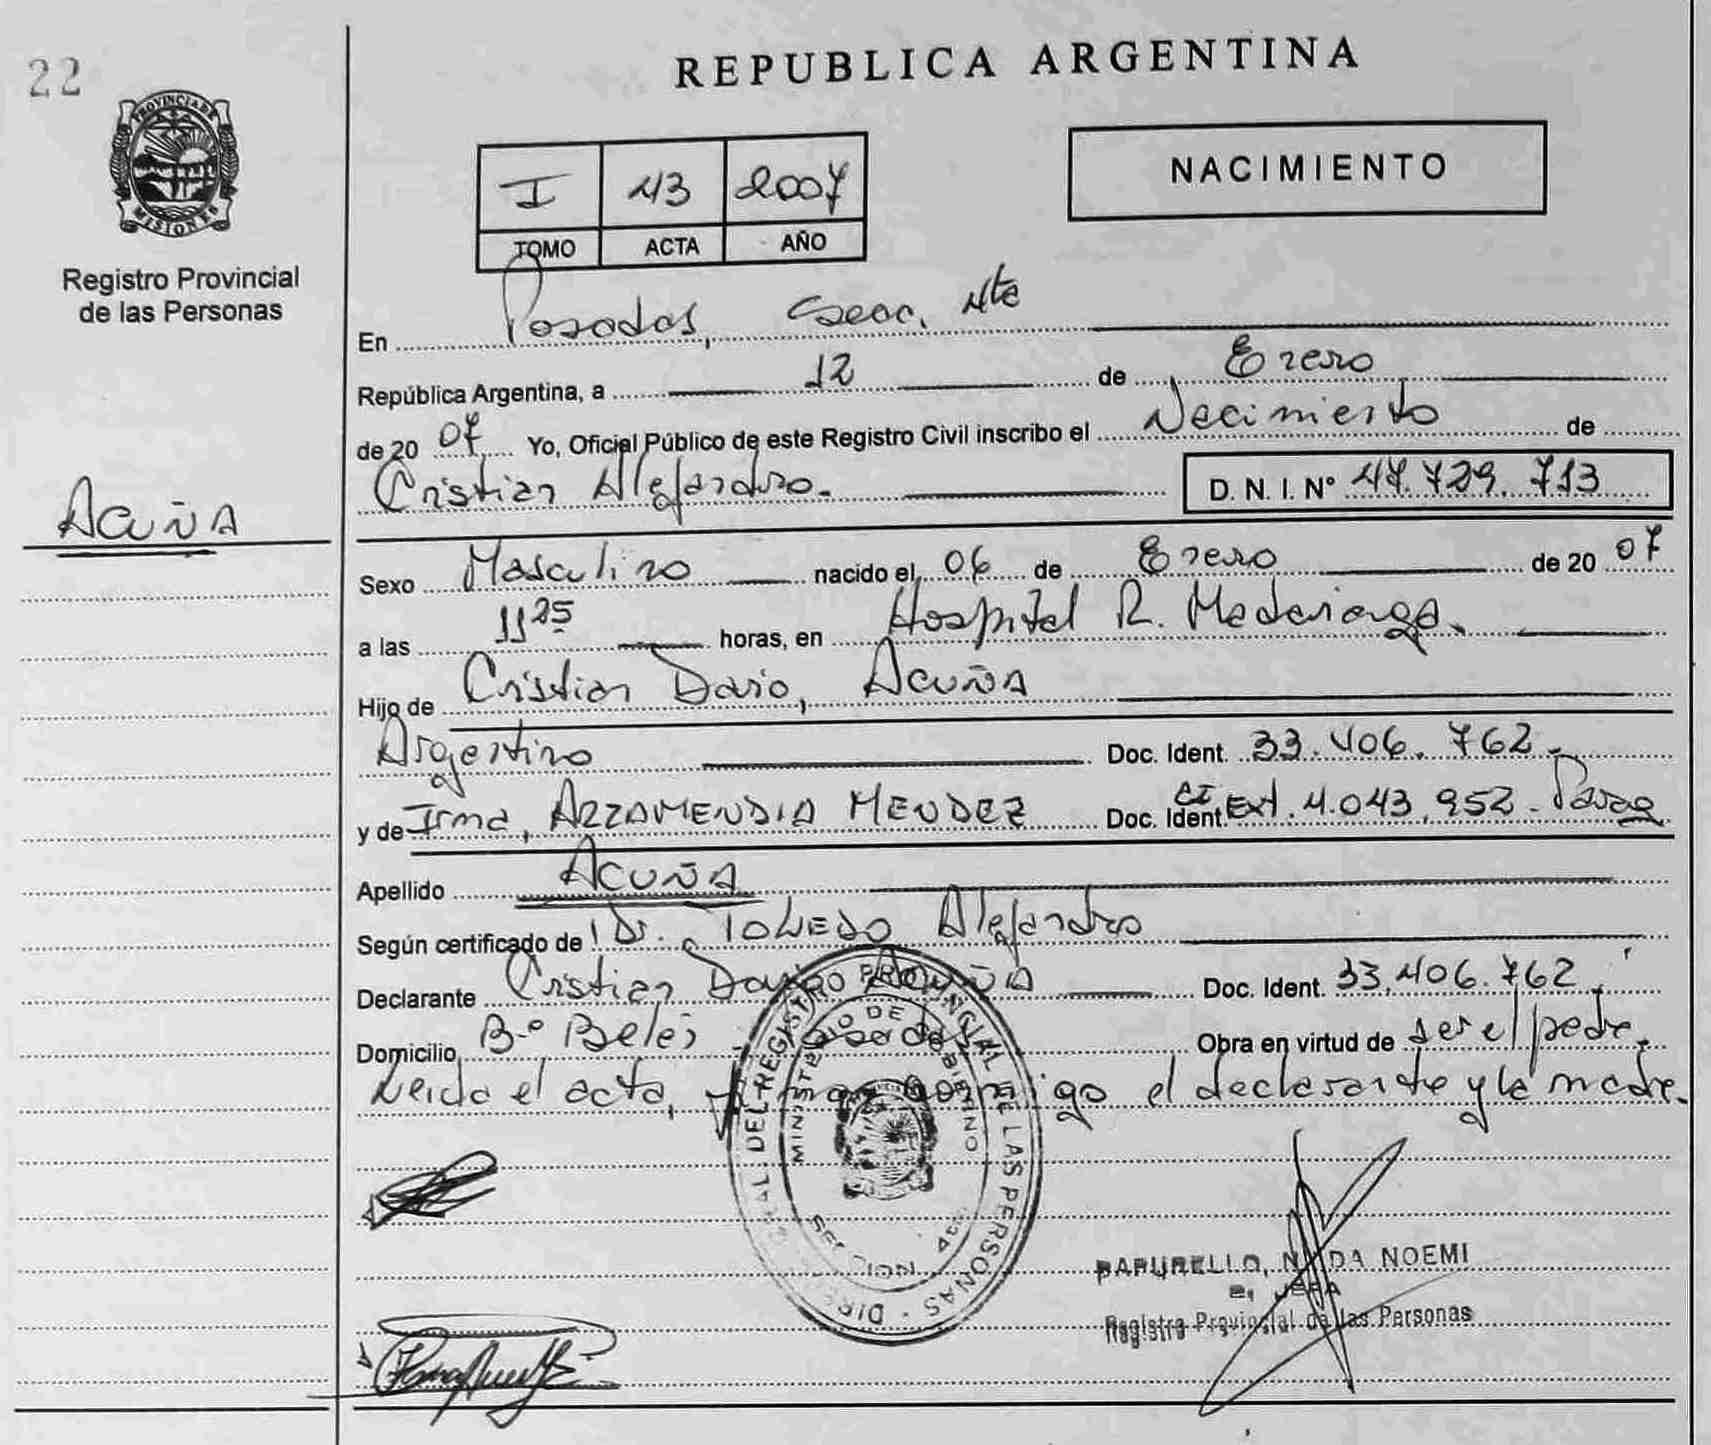 22
REPUBLICA ARGENTINA
PROVINCIA DE
MISIONES
Registro Provincial
de las Personas
I 43 2007
TOMO ACTA AÑO
NACIMIENTO
En Posadas, Secc. 4ta
República Argentina, a 12 de Enero
de 20 07 Yo, Oficial Público de este Registro Civil inscribo el Nacimiento de
Cristian Alejandro. D. N. I. Nº 47.729.713
ACUÑA
Sexo Masculino nacido el 06 de Enero de 20 07
a las 11 25 horas, en Hospital R. Madariaga.
Hijo de Cristian Dario, Acuña
Argentino Doc. Ident. 33.406.762.
y de Irma, ARZAMENDIA MENDEZ Doc. Ident. CI Ext. 4.043.952 - Parag
Apellido ACUÑA
Según certificado de Dr. TOLEDO Alejandro
Declarante Cristian Dario ACUÑA Doc. Ident. 33.406.762.
Domicilio Bº Belen - Posadas Obra en virtud de ser el padre.
Leida el acta, firman conmigo el declarante y la madre.
DEL REGISTRO PROVINCIAL DE LAS PERSONAS
MINISTERIO DE GOBIERNO
NOEMI
Registro Provincial de las Personas